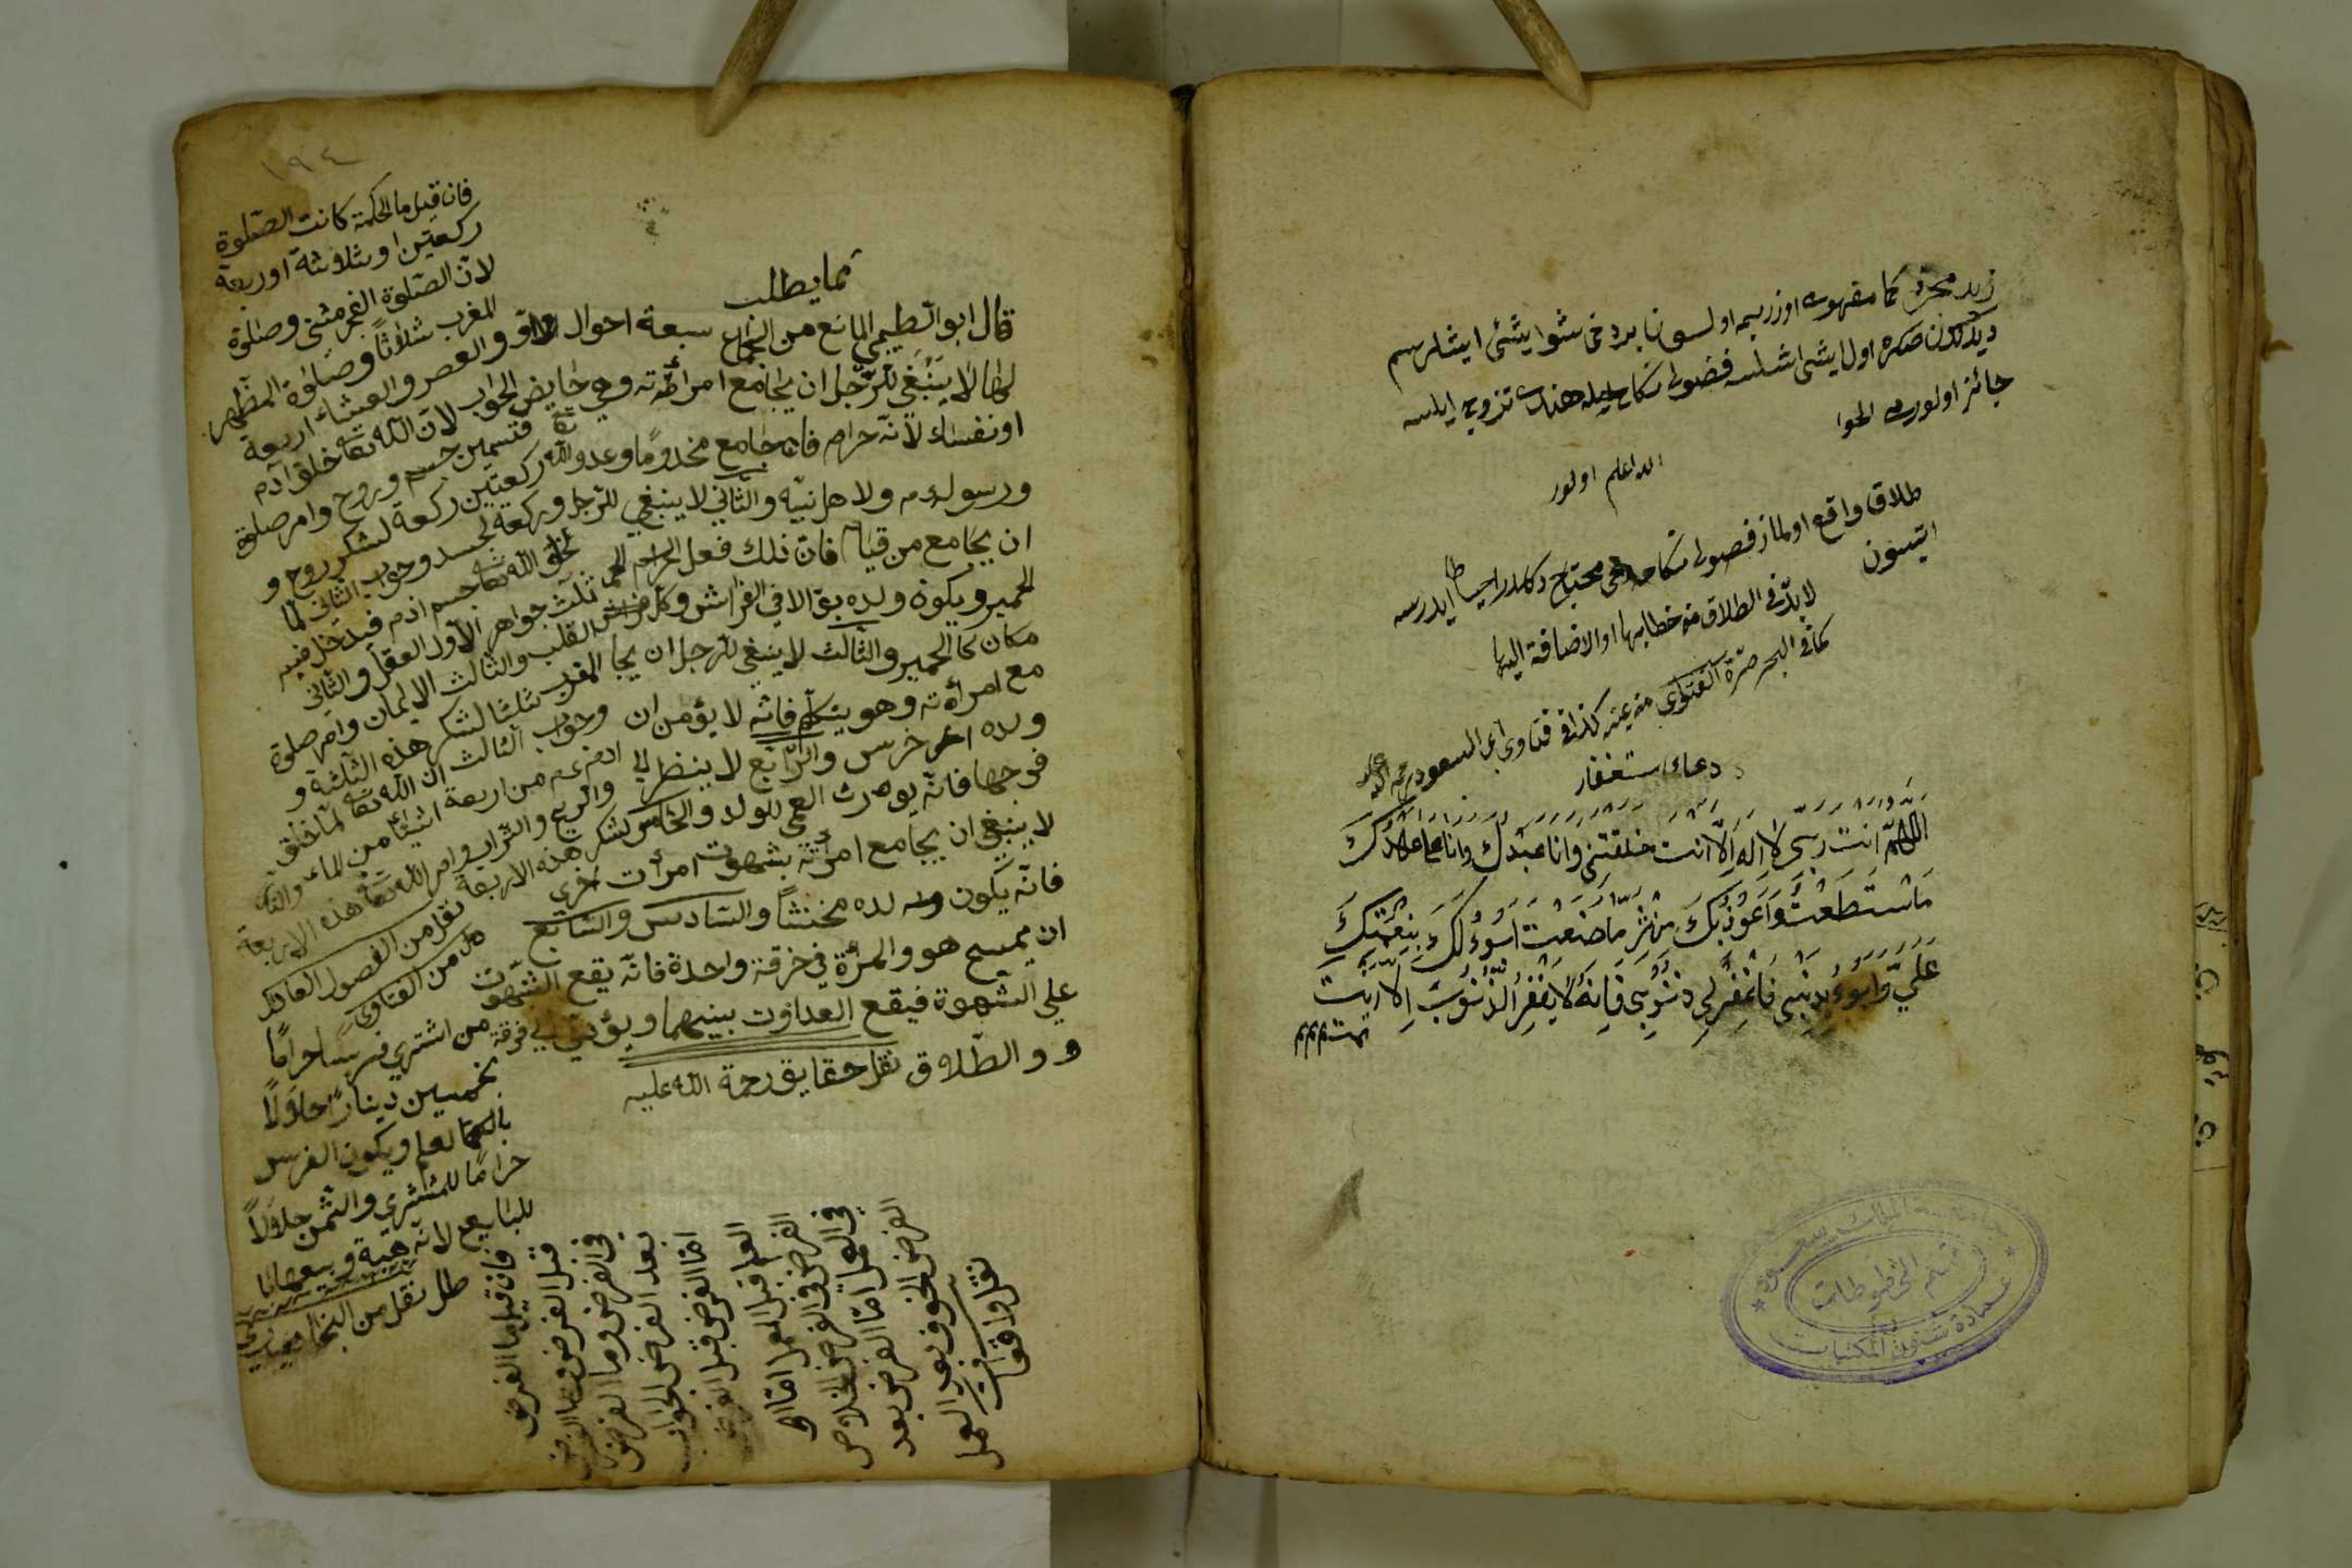 زيد محرق كما مقهور اوزريمه اولسون بر دخی شو ایشی ایشلرسم
دیدكدن صكره اول ایشی اشلسه فضولی نكاح ایله هندی تزویج ایلسه
جائز اولورمی الجوا
الله اعلم اولور
طلاق واقع اولماز فضولی نكاحه دخی محتاج دكلدر احتیاطا ایدرسه
ایتسون
لا بد في الطلاق من خطابها او الاضافة اليها
كما في البحر صرة الفتوى منه عينه كذا في فتاوى ابي السعود رحمه الله عليه
دعاء استغفار
اللهم انت ربي لا اله الا انت خلقتني وانا عبدك وانا على عهدك
ماستطعت واعوذ بك من شر ما صنعت ابوء لك بنعمتك
علي وابوء بذنبي فاغفر لي ذنوبي فانه لا يغفر الذنوب الا انت
تمت م م م
جامعة الملك سعود
قسم المخطوطات
عمادة شئون المكتبات
١٩٤
مما يطلب
قال ابو المانع من الجماع سبعة احوال الاو
لها لا ينبغي للرجل ان يجامع امرأته وهي حايض
او نفساء لانه حرام فان جامع مخدوما وعدو الله تعا
ورسوله ولا هل نبيه والثاني لا ينبغي للرجل
ان يجامع من قيام فان ذلك فعل الحمير
الحمير ويكون ولده بوالا في الفراش وكل
مكان كالحمير والثالث لا ينبغي للرجل ان يجا
مع امرأته وهو يتكلم فانه لا يؤمن ان
ولده اخرس والرابع لا ينظر الي
فرجها فانه يورث العمي للولد والخامس
لا ينبغي ان يجامع امرأته بشهوت امرأت اخرى
فانه يكون ولده مخنثا والسادس والسابع
ان يمسح هو والمرأة في خرقة واحدة فانه يقع الشهوت
علي الشهوة فيقع العداوت بينهما ويؤدي الي فرقة
و والطلاق نقل حقايق رحمة الله عليه
فان قيل ما الحكمة كانت الصلوة
ركعتين او ثلاثة او ربعة
لان الصلوة الفجر مثنى وصلوة
المغرب ثلاثا وصلوة الظهر
والعصر والعيشاء اربعة
الجواب لان الله تعا خلق آدم
قسمين جسم وروح وامر صلوة
ركعتين ركعة لشكر روح و
وركعة لجسد وجواب الثاني لما
خلق الله تعا جسم ادم فيدخل فيه
ثلث جواهر الاول العقل والثاني
القلب والثالث الايمان وامر صلوة
المغرب ثلثا لشكر هذه الثلثة و
وجواب الثالث ان الله تعا لما خلق
ادم عم من اربعة اشيئا من الماء والنار
والريح والتراب وامر الله تعا هذه الاربعة
لشكر هذه الاربعة نقل من الفصول العمادي
من الفتاوى
من اشترى فرسا حراما
بخمسين دينارا حلالا
بالعلم ويكون الفرس
حراما للمشتري والثمن حلالا
للبايع لانه هبة وبيعها
نقل من
فان قيل ما الفرض
قبل الفرض وما الفرض
في الفرض وما الفرض
بعد الفرض الجواب
اما الفرض قبل الفرض
العلم قبل العمل اما
الفرض في الفرض الاخلاص
في العمل اما الفرض بعد
الفرض الخوف بعد العمل
نقل واقعات